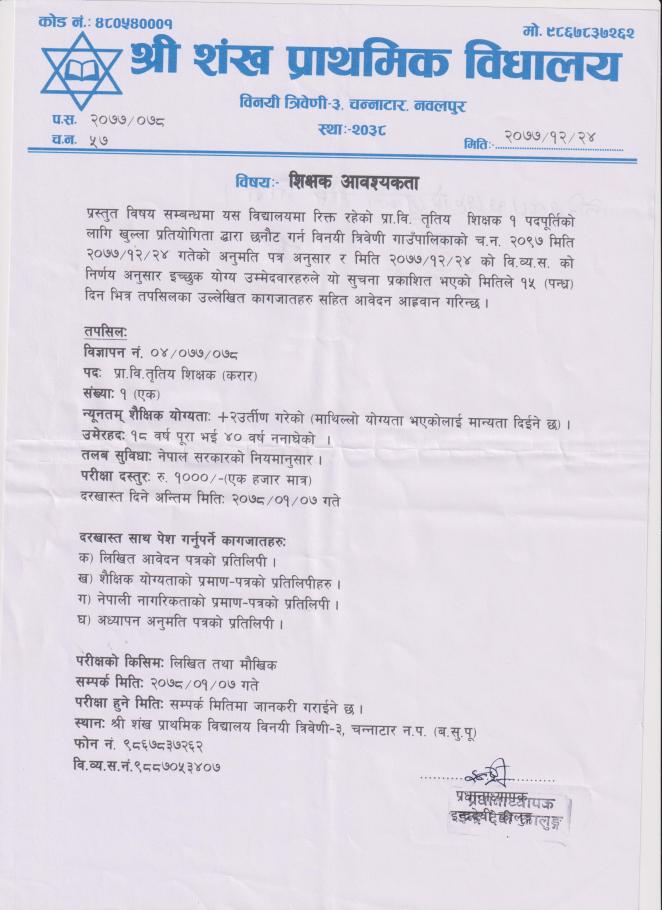 कोड नं.: ४८०५४०००१
मो. ९८६७८३७२६२
श्री शंख प्राथमिक विधालय
विनयी त्रिवेणी-३, चन्नाटार, नवलपुर
प.स. २०७७/०७८
स्था:-२०३८
च.न. ५७
मिति:- २०७७/१२/२४
विषय:- शिक्षक आवश्यकता
प्रस्तुत विषय सम्बन्धमा यस विद्यालयमा रिक्त रहेको प्रा.वि. तृतिय शिक्षक १ पदपूर्तिको
लागि खुल्ला प्रतियोगिता द्वारा छनौट गर्न विनयी त्रिवेणी गाउँपालिकाको च.न. २०९७ मिति
२०७७/१२/२४ गतेको अनुमति पत्र अनुसार र मिति २०७७/१२/२४ को वि.व्य.स. को
निर्णय अनुसार इच्छुक योग्य उम्मेदवारहरुले यो सुचना प्रकाशित भएको मितिले १५ (पन्ध्र)
दिन भित्र तपसिलका उल्लेखित कागजातहरु सहित आवेदन आह्रवान गरिन्छ ।
तपसिल:
विज्ञापन नं. ०४/०७७/०७८
पद: प्रा.वि.तृतिय शिक्षक (करार)
संख्या: १ (एक)
न्यूनतम् शैक्षिक योग्यता: +२उर्तीण गरेको (माथिल्लो योग्यता भएकोलाई मान्यता दिईने छ) ।
उमेरहद: १८ वर्ष पूरा भई ४० वर्ष ननाघेको ।
तलब सुविधा: नेपाल सरकारको नियमानुसार ।
परीक्षा दस्तुर: रु. १०००/-(एक हजार मात्र)
दरखास्त दिने अन्तिम मिति: २०७८/०१/०७ गते
दरखास्त साथ पेश गर्नुपर्ने कागजातहरु:
क) लिखित आवेदन पत्रको प्रतिलिपी ।
ख) शैक्षिक योग्यताको प्रमाण-पत्रको प्रतिलिपीहरु ।
ग) नेपाली नागरिकताको प्रमाण-पत्रको प्रतिलिपी ।
घ) अध्यापन अनुमति पत्रको प्रतिलिपी ।
परीक्षको किसिम: लिखित तथा मौखिक
सम्पर्क मिति: २०७८/०१/०७ गते
परीक्षा हुने मिति: सम्पर्क मितिमा जानकरी गराईने छ ।
स्थान: श्री शंख प्राथमिक विद्यालय विनयी त्रिवेणी-३, चन्नाटार न.प. (ब.सु.पू)
फोन नं. ९८६७८३७२६२
वि.व्य.स.नं.९८८७०५३४०७
प्रधानाध्यापक